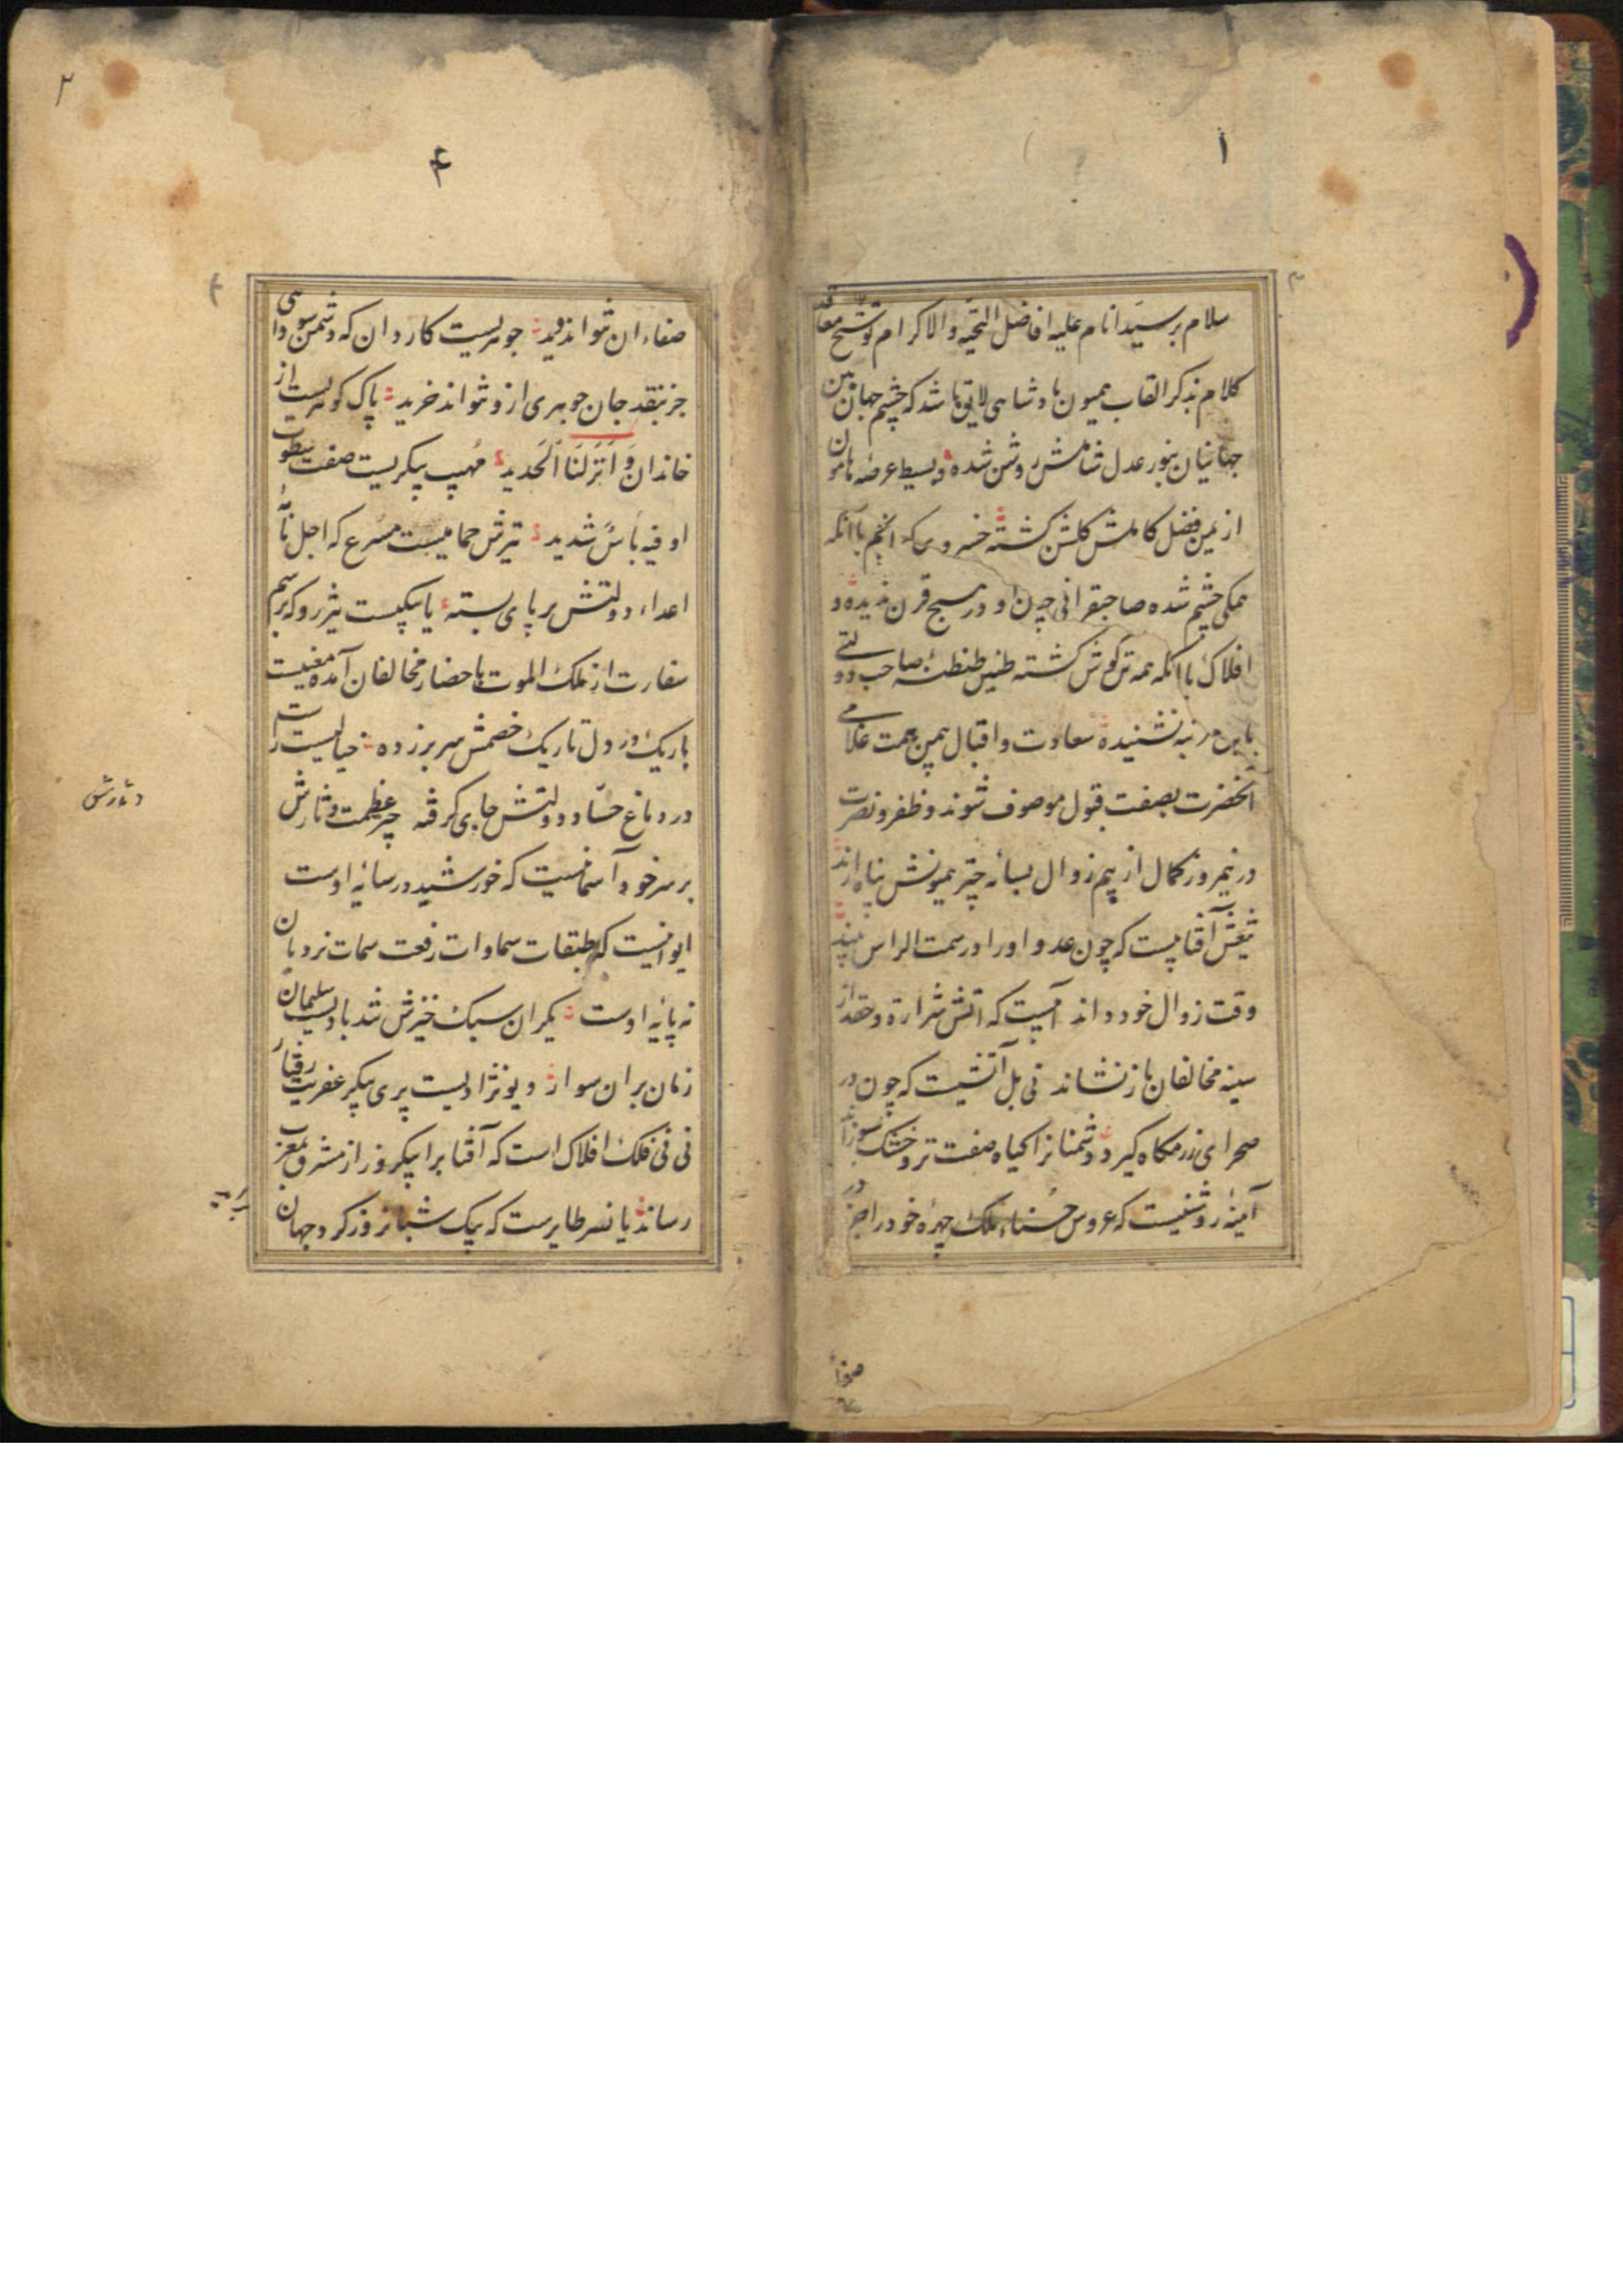 ۱
سلام بر سید انام علیه افاضل التحیه والاکرام توشیح معاقد
کلام بذکر القاب همیون پادشاهی لایق باشد که چشم جهان بین
جهانیان بنور عدل شاملش روشن شده وبسیط عرصه هامون
از یمن فضل کاملش کلشن کشته خسروی که انجم باآنکه
همکی چشم شده صاحبقرانی چون او در هیچ قرن ندیده و
افلاک باآنکه همه تن کوش کشته طنین طنطنهٔ صاحب دولتی
باین مرتبه نشنیده سعادت واقبال بهمین همت غلامی
آنحضرت بصفت قبول موصوف شوند وظفر ونصرت
در نیمروز کمال از بیم زوال بسایهٔ چتر همیونش پناه ارند
تیغش آفتابیست که چون عدو اورا در سمت الراس بیند
وقت زوال خود داند آبیست که آتش شرارة وحقد از
سینه مخالفان باز نشاند نی بل آتشیست که چون در
صحرای رزمکاه کیرد دشمنانرا کیاه صفت تر وخشک سوزاند
آینهٔ روشنیست که عروس حسناء ملک چهرهٔ خود را جز در
صفاء
۲
۴
صفاء ان نتواند دید جوهریست کاردان که دشمن سودایی
جز بنقد جان جوهری ازو نتواند خرید پاک کوهریست از
خاندان وَاَنْزَلْنَا الْحَدید مُهیب پیکریست صفت سطوت
او فیه بَاسٌ شدید تیرش حمامیست مسرع که اجل نامهٔ
اعداء دولتش بر پای بسته یا پیکیست تیزرو که برسم
سفارت از ملک الموت باحضار مخالفان آمده مغنیست
باریک در دل تاریک خصمش سر برزده خیالیست راست
در دماغ حسّاد دولتش جای کرفته چتر عظمت وثارش
بر سر خود آسمانیست که خورشید در سایهٔ اوست
ایوانیست که طبقات سماوات رفعت سمات نردبان
نه پایهٔ اوست یکران سبک خیزش شد بادیست سلیمان
زمان بران سوار دیو نژادیست پری پیکر عفریت رفتار
نی نی فلک افلاک است که آفتابرا بیکروز از مشرق بمغرب
رساند یا نسر طایرست که بیک شبانروز کرد جهان